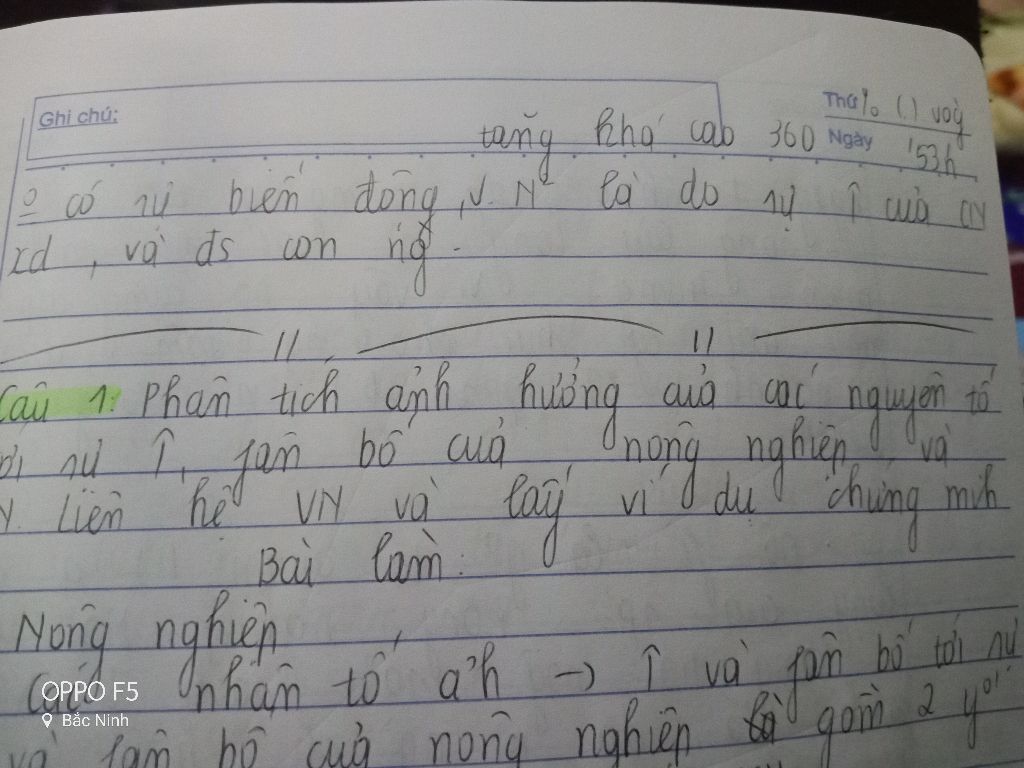 Ghi chú:
Thứ % (.) voy
tăng khá cao 360 Ngày '53h
có sự biến động, V. N² là do sự ↑ của CN
xd, và đs con ng
//  //
Câu 1: Phân tích ảnh hưởng của các nguyên tố
sự ↑, fân bố của nông nghiên và
Liên hệ VN và lấy ví dụ chứng minh
Bài làm:
Nông nghiên
Các nhân tố a'h → ↑ và fân bố tới sự
và fân bố của nông nghiên gồm 2 y
OPPO F5
Bắc Ninh